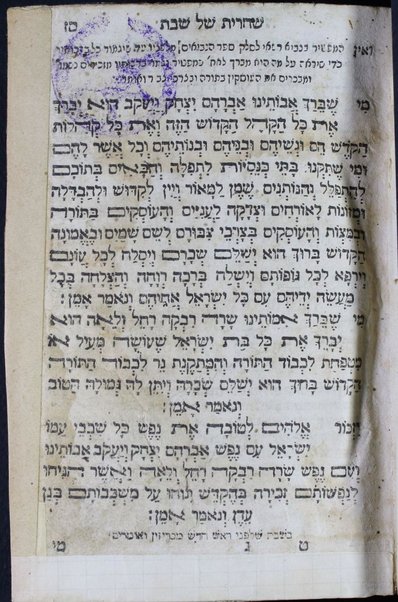 שחרית של שבת
טז
מי שברך אבותינו אברהם יצחק ויעקב הוא יברך
את כל הקהל הקדוש הזה ואת כל קהלות
הקדש הם ונשיהם ובניהם ובנותיהם וכל אשר להם
ומי שתקנו בתי כנסיות לתפלה והבאים בתוכם
להתפלל והנותנים שמן למאור ויין לקדוש ולהבדלה
ומזונות לאורחים וצדקה לעניים והעוסקים בתורה
ובמצות והעוסקים בצרכי צבורם לשם שמים ובאמונה
הקדוש ברוך הוא ישלם שכרם ויסלח לכל עונם
וירפא לכל גופותם וישלח ברכה רוחה והצלחה בכל
מעשה ידיהם עם כל ישראל אחיהם ונאמר אמן:
מי שברך אמותינו שרה רבקה רחל ולאה הוא
יברך את כל בת ישראל שעושה מעיל או
מטפחת לכבוד התורה והמתקנת נר לכבוד התורה
הקדוש ברוך הוא ישלם שכרה ויתן לה גמולה הטוב
ונאמר אמן:
יזכור אלהים לטובה את נפש כל שכבי עמו
ישראל עם נפש אברהם יצחק ויעקב אבותינו
ועם נפש שרה רבקה רחל ולאה ואשר הניחו
לנפשותם זכירה בהקדש ינוחו על משכבותם בגן
עדן ונאמר אמן:
בשבת שלפני ראש חדש מכריזין ואומרים:
ט ג מי